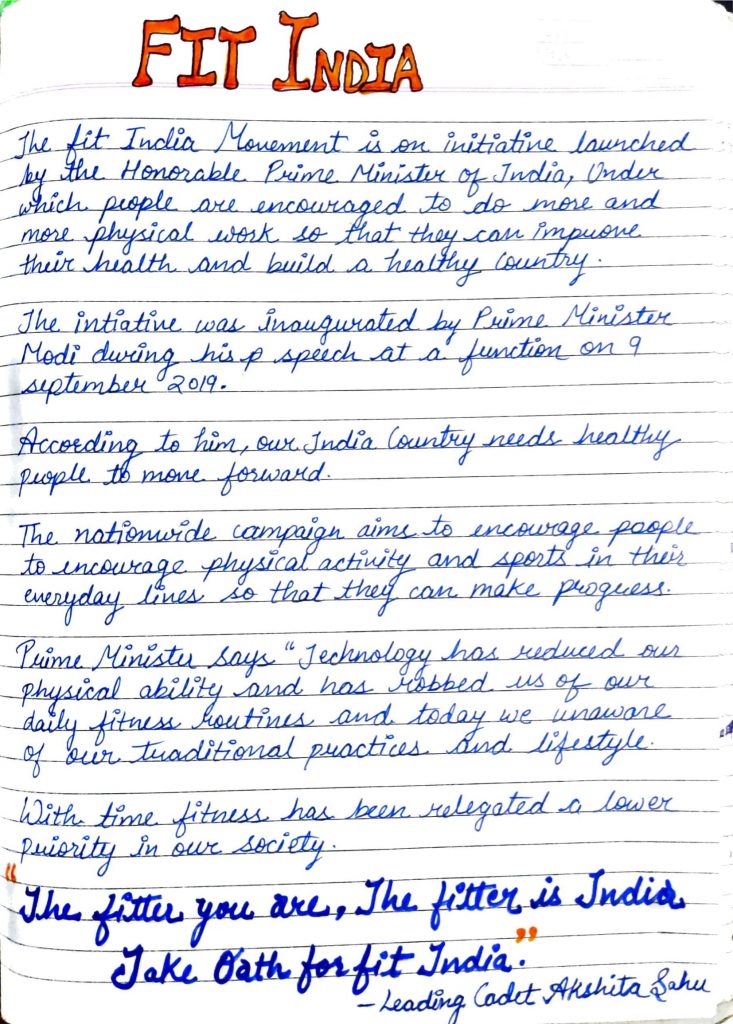 FIT INDIA
The fit India Movement is on initiative launched
by the Honorable Prime Minister of India, Under
which people are encouraged to do more and
more physical work so that they can improve
their health and build a healthy country.
The intiative was inaugurated by Prime Minister
Modi during his p speech at a function on 9
september 2019.
According to him, our India Country needs healthy
people to move forward.
The nationwide campaign aims to encourage people
to encourage physical activity and sports in their
everyday lives so that they can make progress.
Prime Minister says "Technology has reduced our
physical ability and has robbed us of our
daily fitness routines and today we unaware
of our traditional practices and lifestyle.
With time fitness has been relegated a lower
priority in our society.
"The fitter you are, The fitter is India
Take Oath for fit India."
- Leading Cadet Akshita Sahu